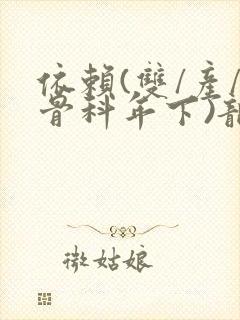 依賴(雙/產/
骨科年下)
微姑娘